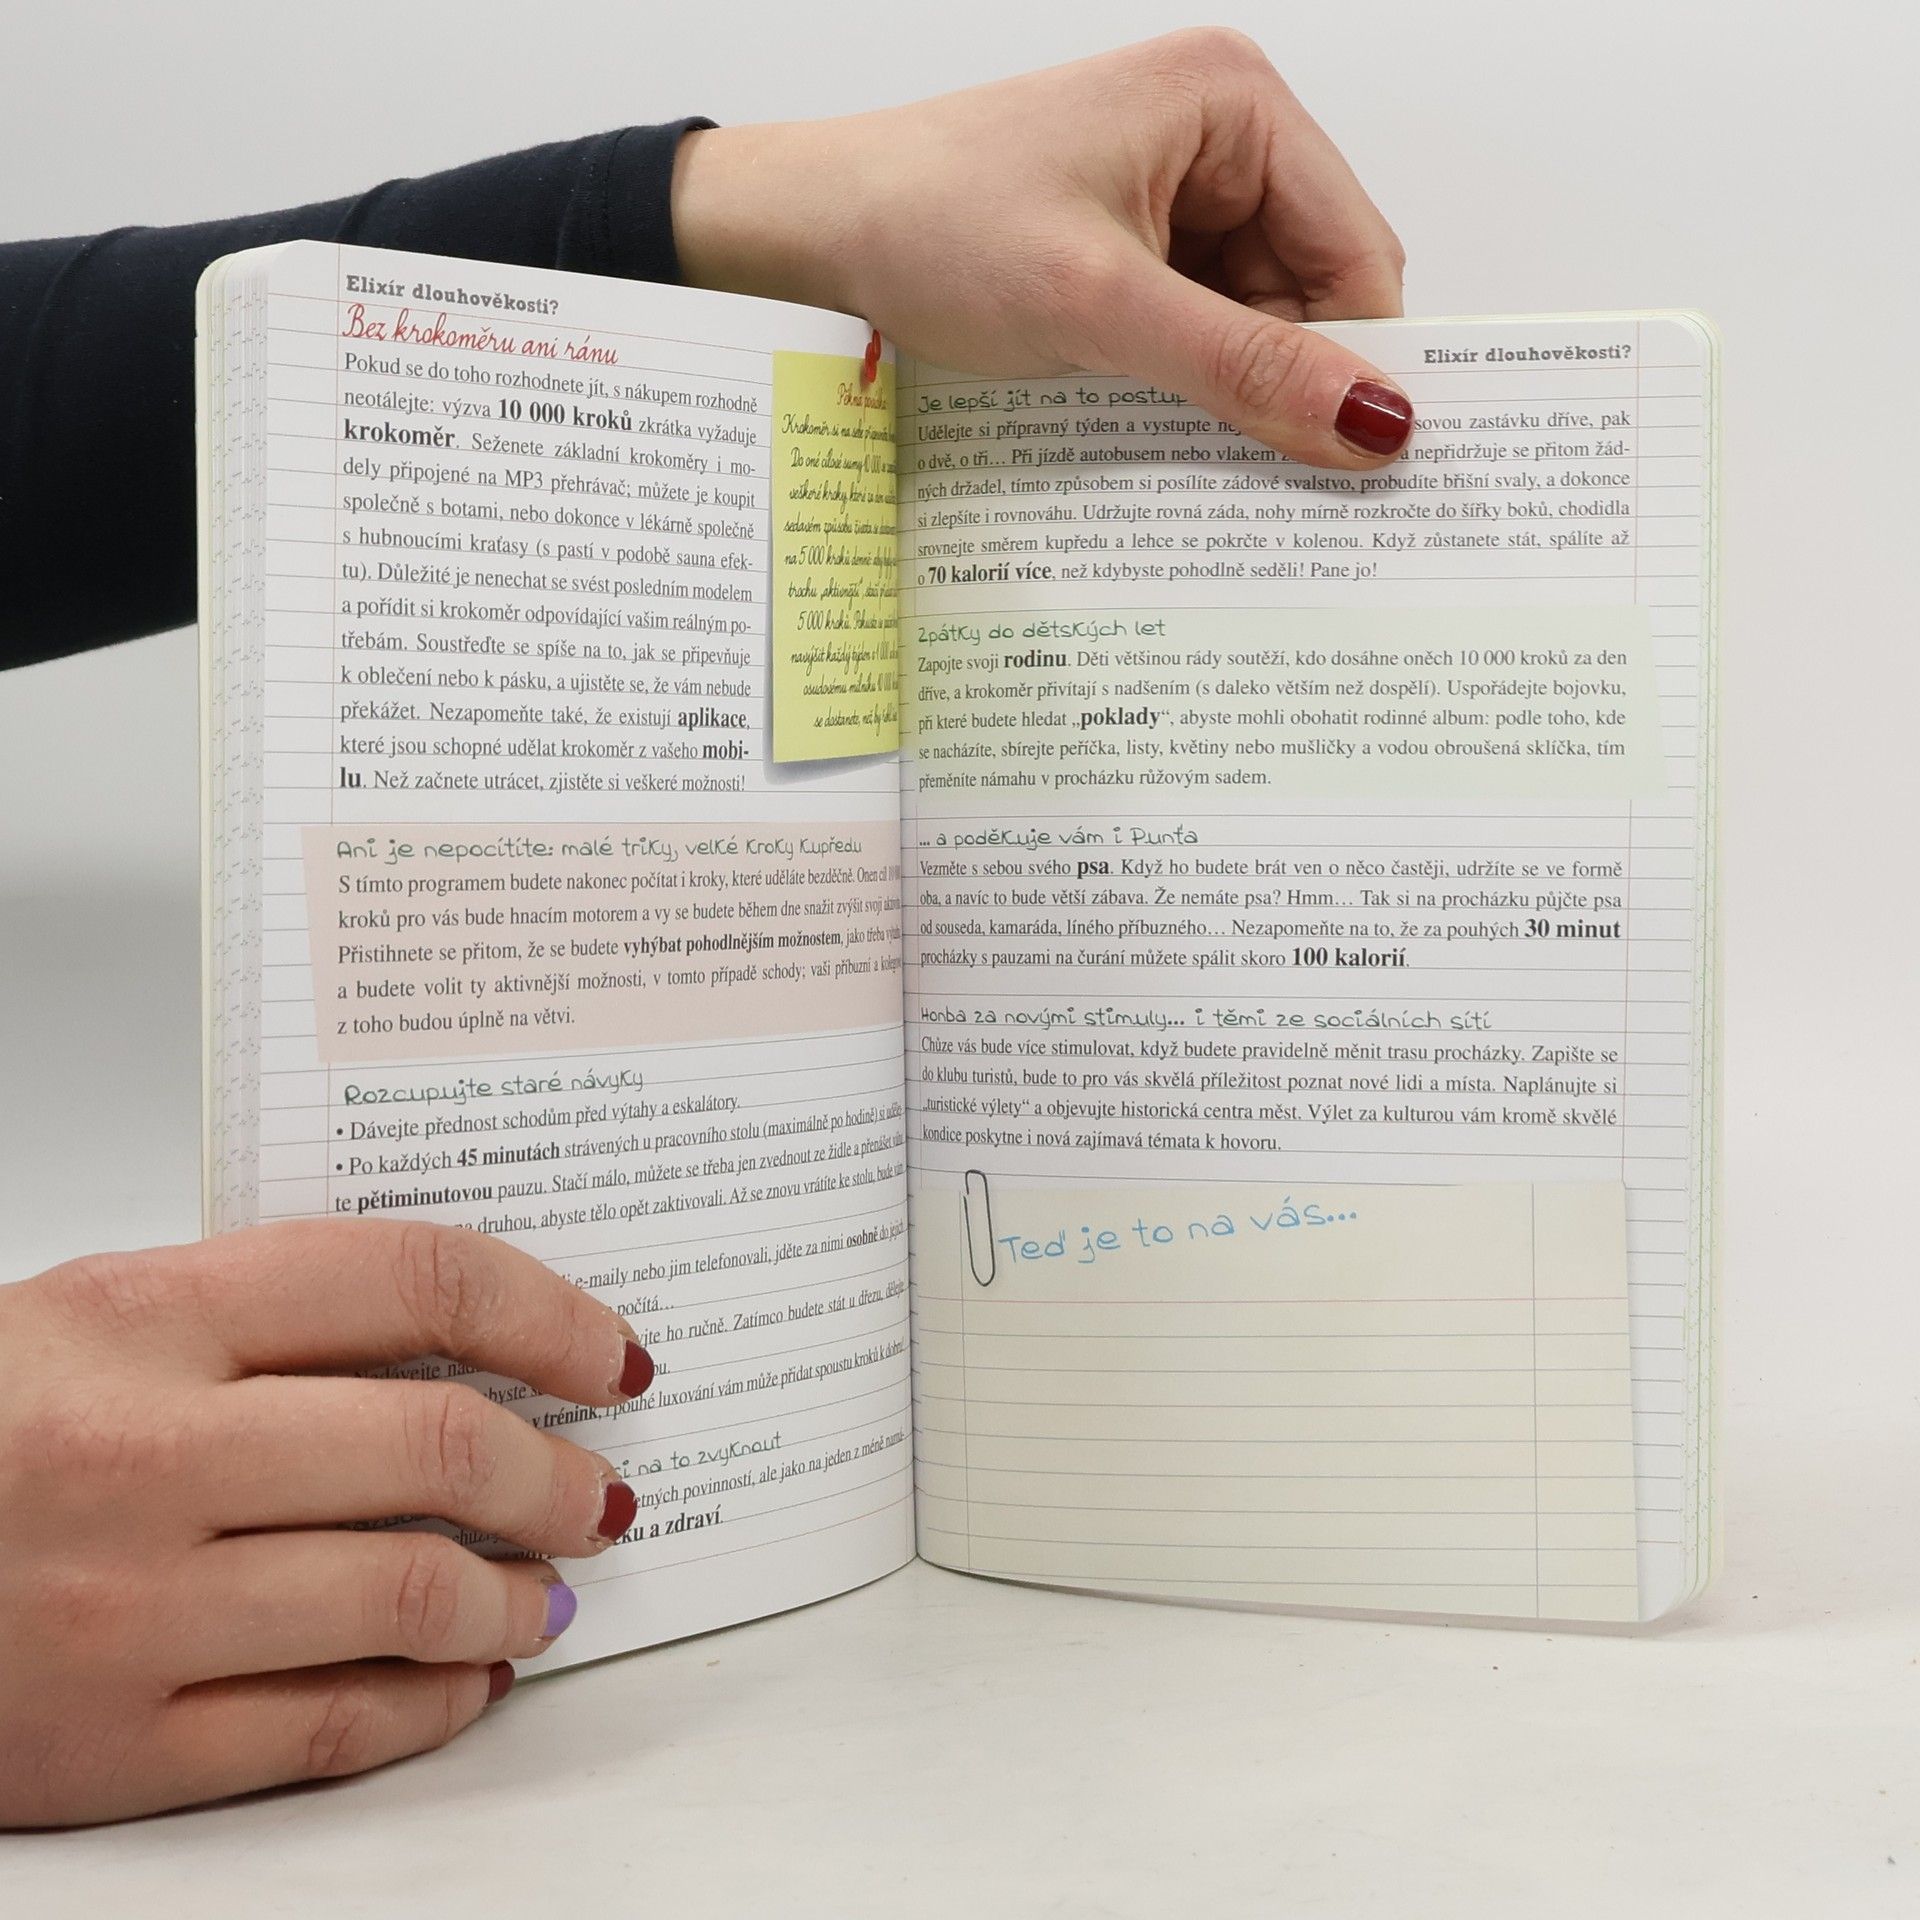 Elixír dlouhověkosti?
Bez krokoměru ani ránu
Pokud se do toho rozhodnete jít, s nákupem rozhodně
neotálejte: výzva 10 000 kroků zkrátka vyžaduje
krokoměr. Seženete základní krokoměry i mo-
dely připojené na MP3 přehrávač; můžete je koupit
společně s botami, nebo dokonce v lékárně společně
s hubnoucími kraťasy (s pastí v podobě sauna efek-
tu). Důležité je nenechat se svést posledním modelem
a pořídit si krokoměr odpovídající vašim reálným po-
třebám. Soustřeďte se spíše na to, jak se připevňuje
k oblečení nebo k pásku, a ujistěte se, že vám nebude
překážet. Nezapomeňte také, že existují aplikace,
které jsou schopné udělat krokoměr z vašeho mobi-
lu. Než začnete utrácet, zjistěte si veškeré možnosti!
Krokoměr si na sebe
Do oné cílové sumy 10 000 se
veškeré kroky, které za den
sedavém způsobu života se
na 5 000 kroků denně: aby
trochu „aktivnější“, stačí
5 000 kroků. Pokuste se
navýšit každý týden o 1 000
osudovému milníku 10 000
se dostanete, než
Ani je nepocítíte: malé triky, velké kroky kupředu
S tímto programem budete nakonec počítat i kroky, které uděláte bezděčně. Onen cíl
kroků pro vás bude hnacím motorem a vy se budete během dne snažit zvýšit svoji
Přistihnete se přitom, že se budete vyhýbat pohodlnějším možnostem, jako třeba
a budete volit ty aktivnější možnosti, v tomto případě schody; vaši příbuzní a
z toho budou úplně na větvi.
Rozcupujte staré návyky
• Dávejte přednost schodům před výtahy a eskalátory.
• Po každých 45 minutách strávených u pracovního stolu (maximálně po hodině) si
te pětiminutovou pauzu. Stačí málo, můžete se třeba jen zvednout ze židle a přenášet
druhou, abyste tělo opět zaktivovali. Až se znovu vrátíte ke stolu, bude
e-maily nebo jim telefonovali, jděte za nimi osobně do jejich
počítá…
ho ručně. Zatímco budete stát u dřezu, dělejte
v trénink, i pouhé luxování vám může přidat spoustu kroků k dobru!
na to zvyknout
povinností, ale jako na jeden z méně
a zdraví.
Elixír dlouhověkosti?
Je lepší jít na to
Udělejte si přípravný týden a vystupte
zastávku dříve, pak
o dvě, o tři… Při jízdě autobusem nebo vlakem
a nepřidržuje se přitom žád-
ných držadel, tímto způsobem si posílíte zádové svalstvo, probudíte břišní svaly, a dokonce
si zlepšíte i rovnováhu. Udržujte rovná záda, nohy mírně rozkročte do šířky boků, chodidla
srovnejte směrem kupředu a lehce se pokrčte v kolenou. Když zůstanete stát, spálíte až
o 70 kalorií více, než kdybyste pohodlně seděli! Pane jo!
Zpátky do dětských let
Zapojte svoji rodinu. Děti většinou rády soutěží, kdo dosáhne oněch 10 000 kroků za den
dříve, a krokoměr přivítají s nadšením (s daleko větším než dospělí). Uspořádejte bojovku,
při které budete hledat „poklady“, abyste mohli obohatit rodinné album: podle toho, kde
se nacházíte, sbírejte peříčka, listy, květiny nebo mušličky a vodou obroušená sklíčka, tím
přeměníte námahu v procházku růžovým sadem.
... a poděkuje vám i Punťa
Vezměte s sebou svého psa. Když ho budete brát ven o něco častěji, udržíte se ve formě
oba, a navíc to bude větší zábava. Že nemáte psa? Hmm… Tak si na procházku půjčte psa
od souseda, kamaráda, líného příbuzného… Nezapomeňte na to, že za pouhých 30 minut
procházky s pauzami na čurání můžete spálit skoro 100 kalorií.
Honba za novými stimuly... i těmi ze sociálních sítí
Chůze vás bude více stimulovat, když budete pravidelně měnit trasu procházky. Zapište se
do klubu turistů, bude to pro vás skvělá příležitost poznat nové lidi a místa. Naplánujte si
„turistické výlety“ a objevujte historická centra měst. Výlet za kulturou vám kromě skvělé
kondice poskytne i nová zajímavá témata k hovoru.
Teď je to na vás...